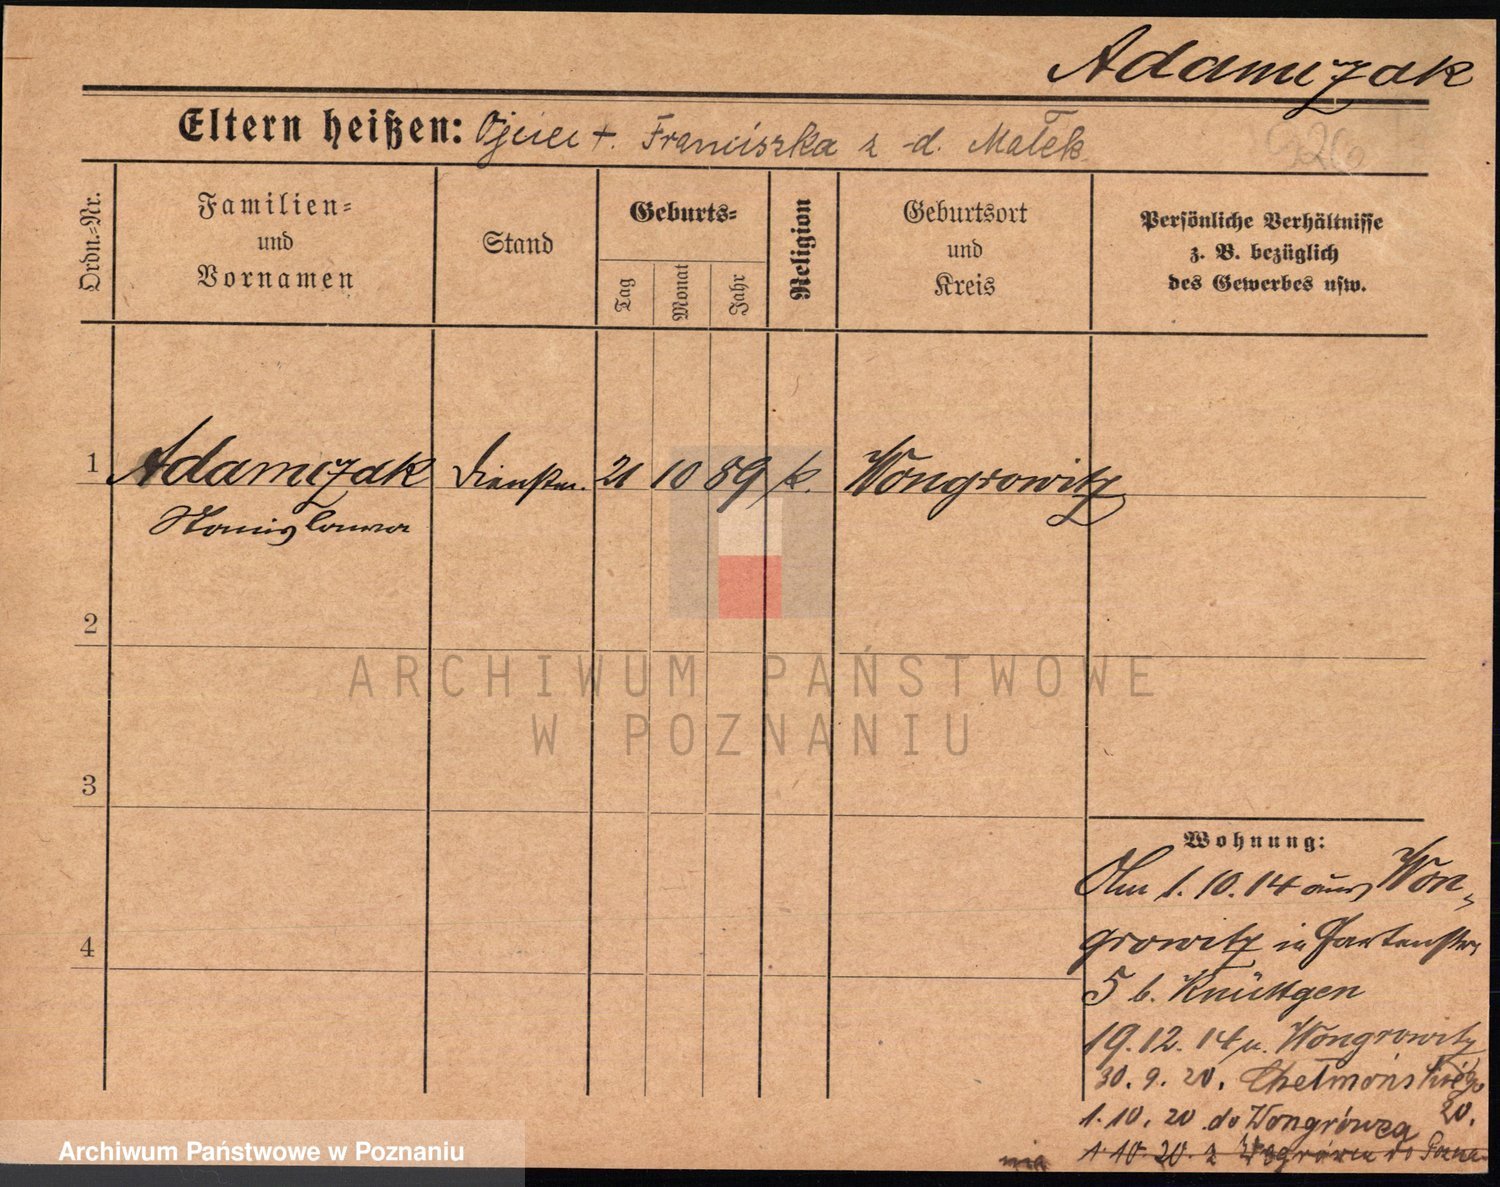 Adamczak
Eltern heißen: Ojciec +. Franciszka z d. Małek
Ordn.=Nr.
Familien=
und
Vornamen
Stand
Geburts=
Tag
Monat
Jahr
Religion
Geburtsort
und
Kreis
Persönliche Verhältnisse
z. B. bezüglich
des Gewerbes usw.
1 Adamczak Dienstm. 21 10 89 k. Wongrowitz
Stanislawa
2
3
4
ARCHIWUM PAŃSTWOWE
W POZNANIU
Wohnung:
Am 1.10.14 aus Won-
growitz in Gartenstr.
5 b. Knüttgen
19.12.14 n. Wongrowitz
30.9.20. Chełmońskiego
20.
1.10.20 do Wongrówca
1 10 20. z do
Archiwum Państwowe w Poznaniu